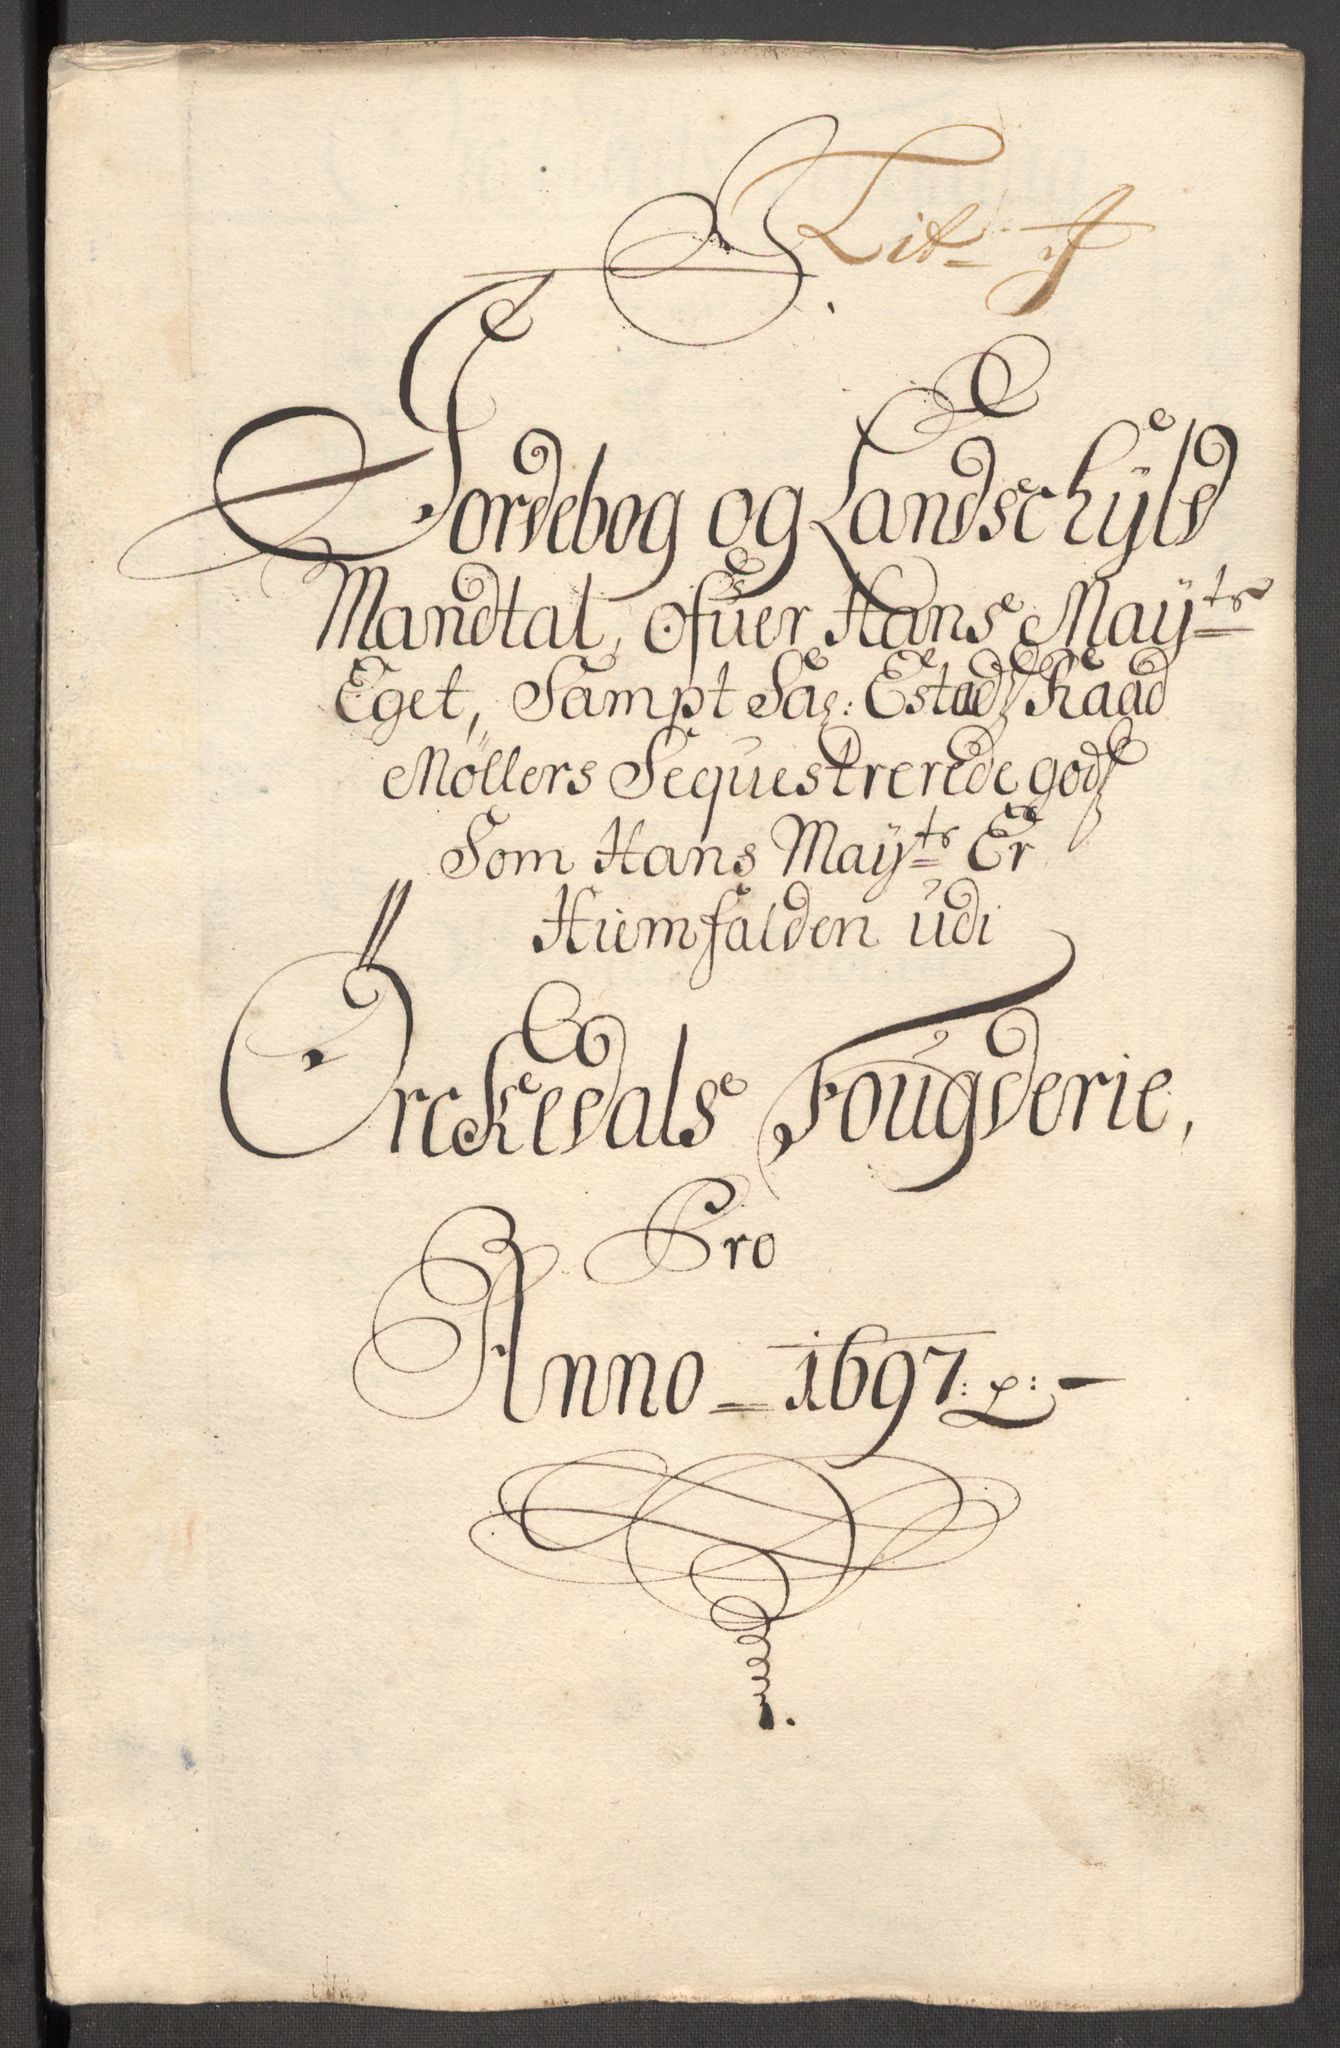 Lit: A
Jordebog og Landschyld
Mandtal, ofuer Hans May:ts
Eget, Sampt Sa: Estadz Raad
Möllers Sequestrerede godz
Som Hans May:ts Er
Hiemfalden udi
Orckedals Fougderie,
Pro
Anno = 1697: